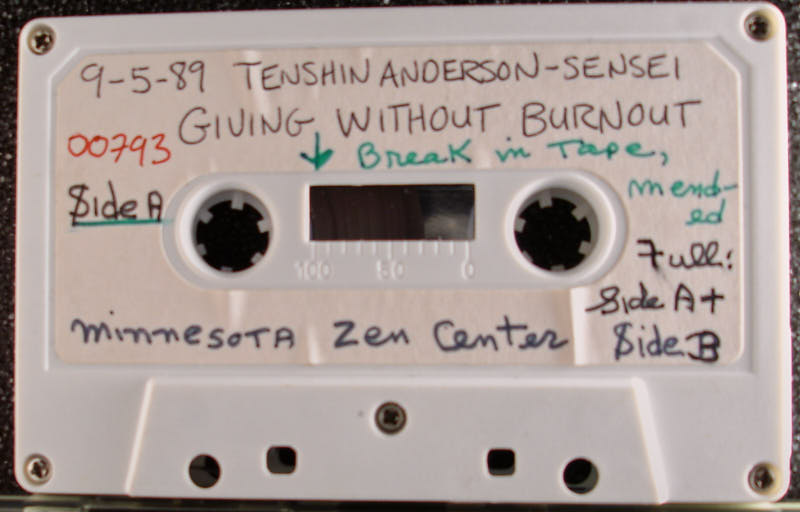 9-5-89 TENSHIN ANDERSON-SENSEI
GIVING WITHOUT BURNOUT
00793
↓ Break in Tape,
mend-
ed
Side A
Full:
Side A+
Side B
100 50 0
Minnesota Zen Center